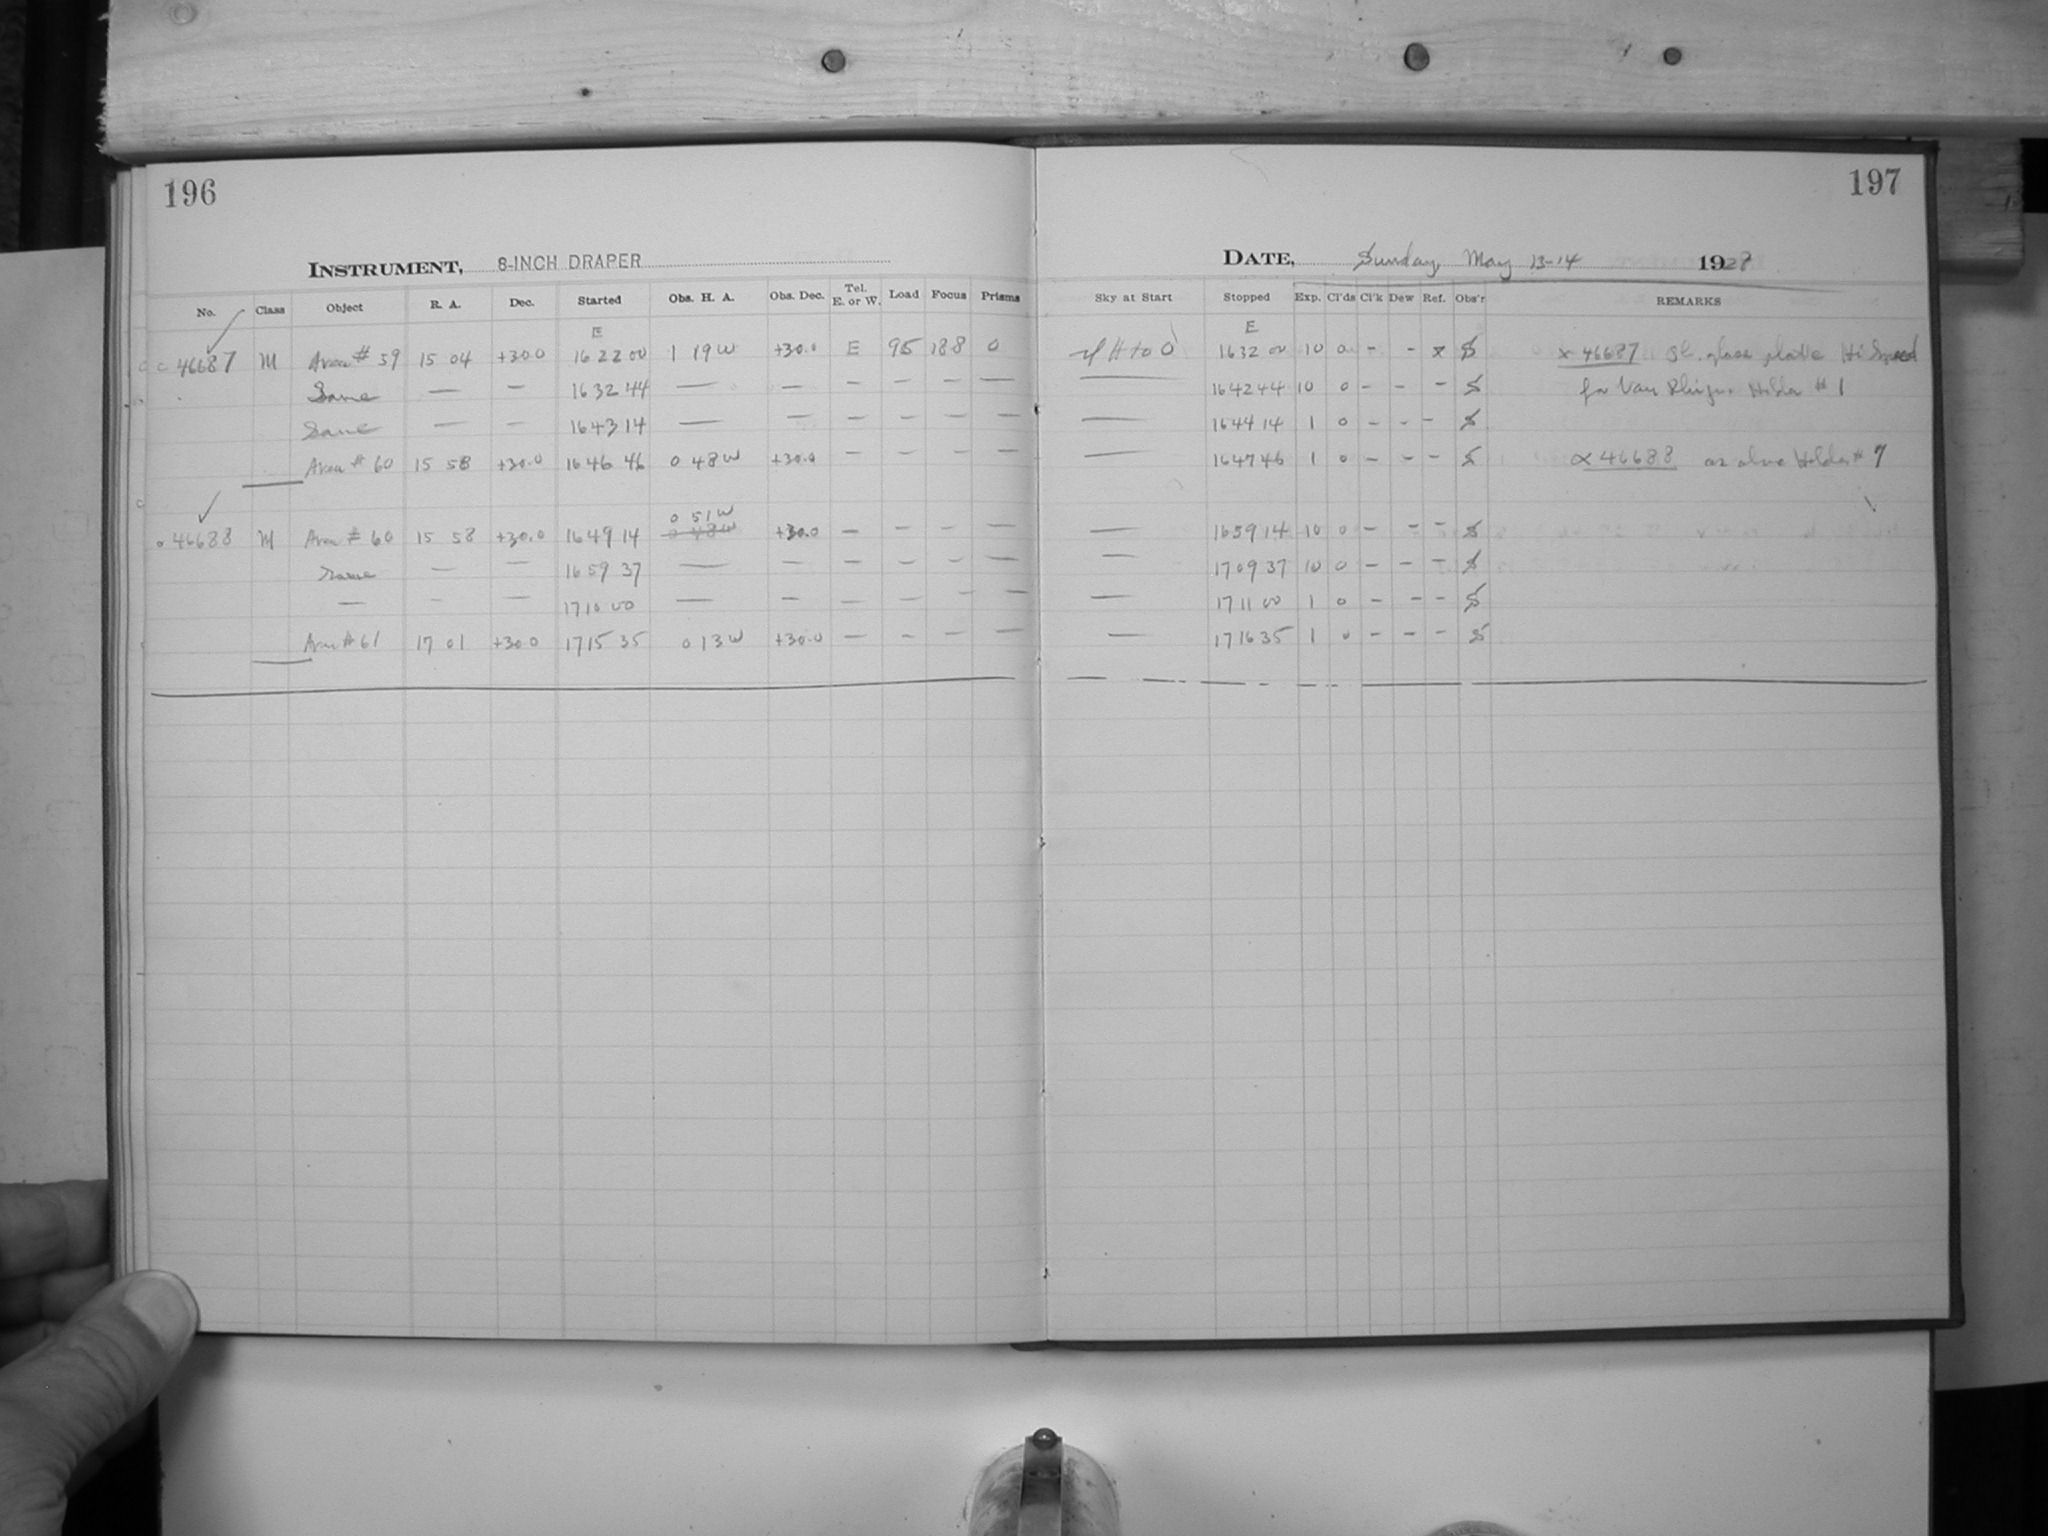 196
197
INSTRUMENT, 8-INCH DRAPER
DATE, Sunday, May 13-14 1928
No. Class Object R. A. Dec. Started Obs. H. A. Obs. Dec. Tel. E. or W. Load Focus Prisms Sky at Start Stopped Exp. Cl'ds Cl'k Dew Ref. Obs'r REMARKS
E E
c 46687 M Area # 59 15 04 +30.0 16 22 00 1 19 W +30.0 E 95 188 0 H to 0 16 32 00 10 0 - - x S x 46687 glass plate Hi Speed
Same — — 16 32 44 — — — — — — — 16 42 44 10 0 - - - S for Van Rhijn. Holder # 1
Same — — 16 43 14 — — — — — — — 16 44 14 1 0 - - - S
Area # 60 15 58 +30.0 16 46 46 0 48 W +30.0 — — — — — 16 47 46 1 0 - - - S x 46688 as above Holder # 7
0 51 W
46688 M Area # 60 15 58 +30.0 16 49 14 0 48 W +30.0 — — — — — 16 59 14 10 0 - - - S
Same — — 16 59 37 — — — — — — — 17 09 37 10 0 - - - S
— — — 17 10 00 — — — — — — — 17 11 00 1 0 - - - S
Area # 61 17 01 +30.0 17 15 35 0 13 W +30.0 — — — — — 17 16 35 1 0 - - - S